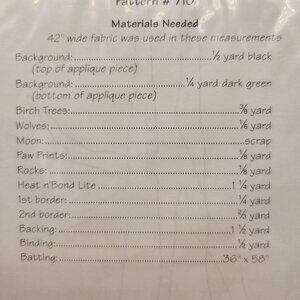 Pattern # 710
Materials Needed
42" wide fabric was used in these measurements
Background:.......½ yard black
(top of applique piece)
Background:.......¼ yard dark green
(bottom of applique piece)
Birch Trees:.......⅜ yard
Wolves:.......⅙ yard
Moon:.......scrap
Paw Prints:.......⅛ yard
Rocks:.......⅛ yard
Heat n'Bond Lite.......1 ¼ yard
1st border:.......¼ yard
2nd border:.......⅔ yard
Backing:.......1 ½ yard
Binding:.......½ yard
Batting:.......36" x 58"